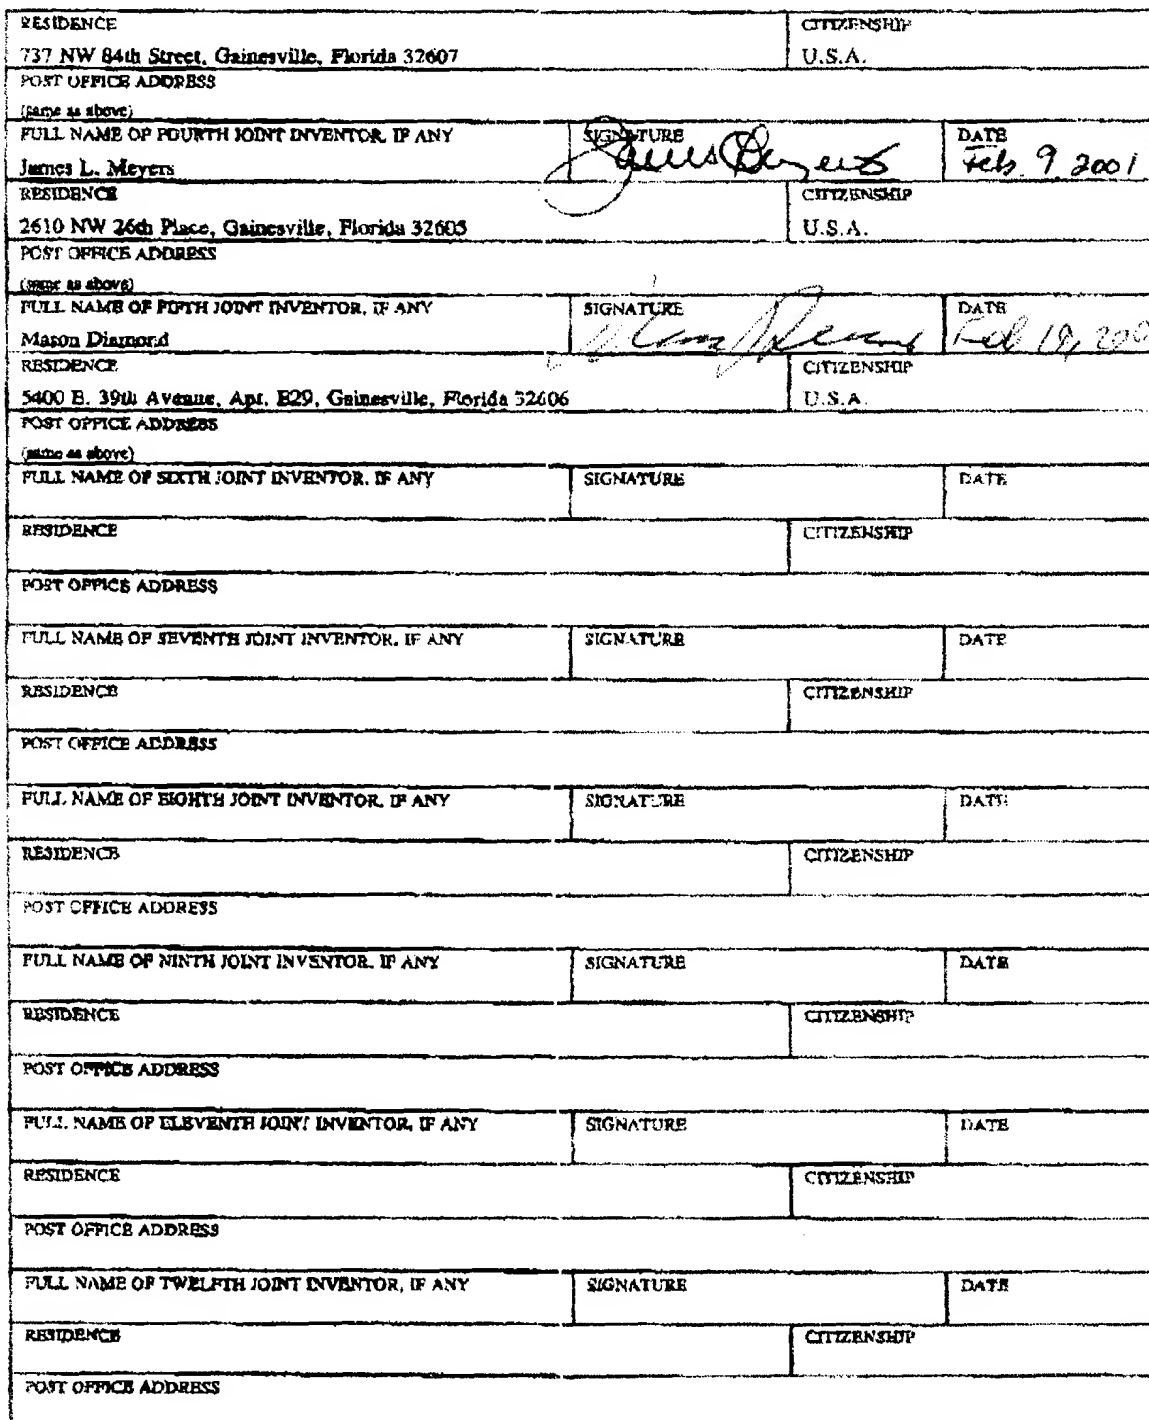 RESIDENCE CITIZENSHIP
737 NW 84th Street, Gainesville, Florida 32607 U.S.A.
POST OFFICE ADDRESS
(same as above)
FULL NAME OF FOURTH JOINT INVENTOR, IF ANY SIGNATURE DATE
James L. Meyers Feb. 9, 2001
RESIDENCE CITIZENSHIP
2610 NW 26th Place, Gainesville, Florida 32605 U.S.A.
POST OFFICE ADDRESS
(same as above)
FULL NAME OF FIFTH JOINT INVENTOR, IF ANY SIGNATURE DATE
Mason Diamond Feb
RESIDENCE CITIZENSHIP
5400 E. 39th Avenue, Apt. E29, Gainesville, Florida 32606 U.S.A.
POST OFFICE ADDRESS
(same as above)
FULL NAME OF SIXTH JOINT INVENTOR, IF ANY SIGNATURE DATE
RESIDENCE CITIZENSHIP
POST OFFICE ADDRESS
FULL NAME OF SEVENTH JOINT INVENTOR, IF ANY SIGNATURE DATE
RESIDENCE CITIZENSHIP
POST OFFICE ADDRESS
FULL NAME OF EIGHTH JOINT INVENTOR, IF ANY SIGNATURE DATE
RESIDENCE CITIZENSHIP
POST OFFICE ADDRESS
FULL NAME OF NINTH JOINT INVENTOR, IF ANY SIGNATURE DATE
RESIDENCE CITIZENSHIP
POST OFFICE ADDRESS
FULL NAME OF ELEVENTH JOINT INVENTOR, IF ANY SIGNATURE DATE
RESIDENCE CITIZENSHIP
POST OFFICE ADDRESS
FULL NAME OF TWELFTH JOINT INVENTOR, IF ANY SIGNATURE DATE
RESIDENCE CITIZENSHIP
POST OFFICE ADDRESS